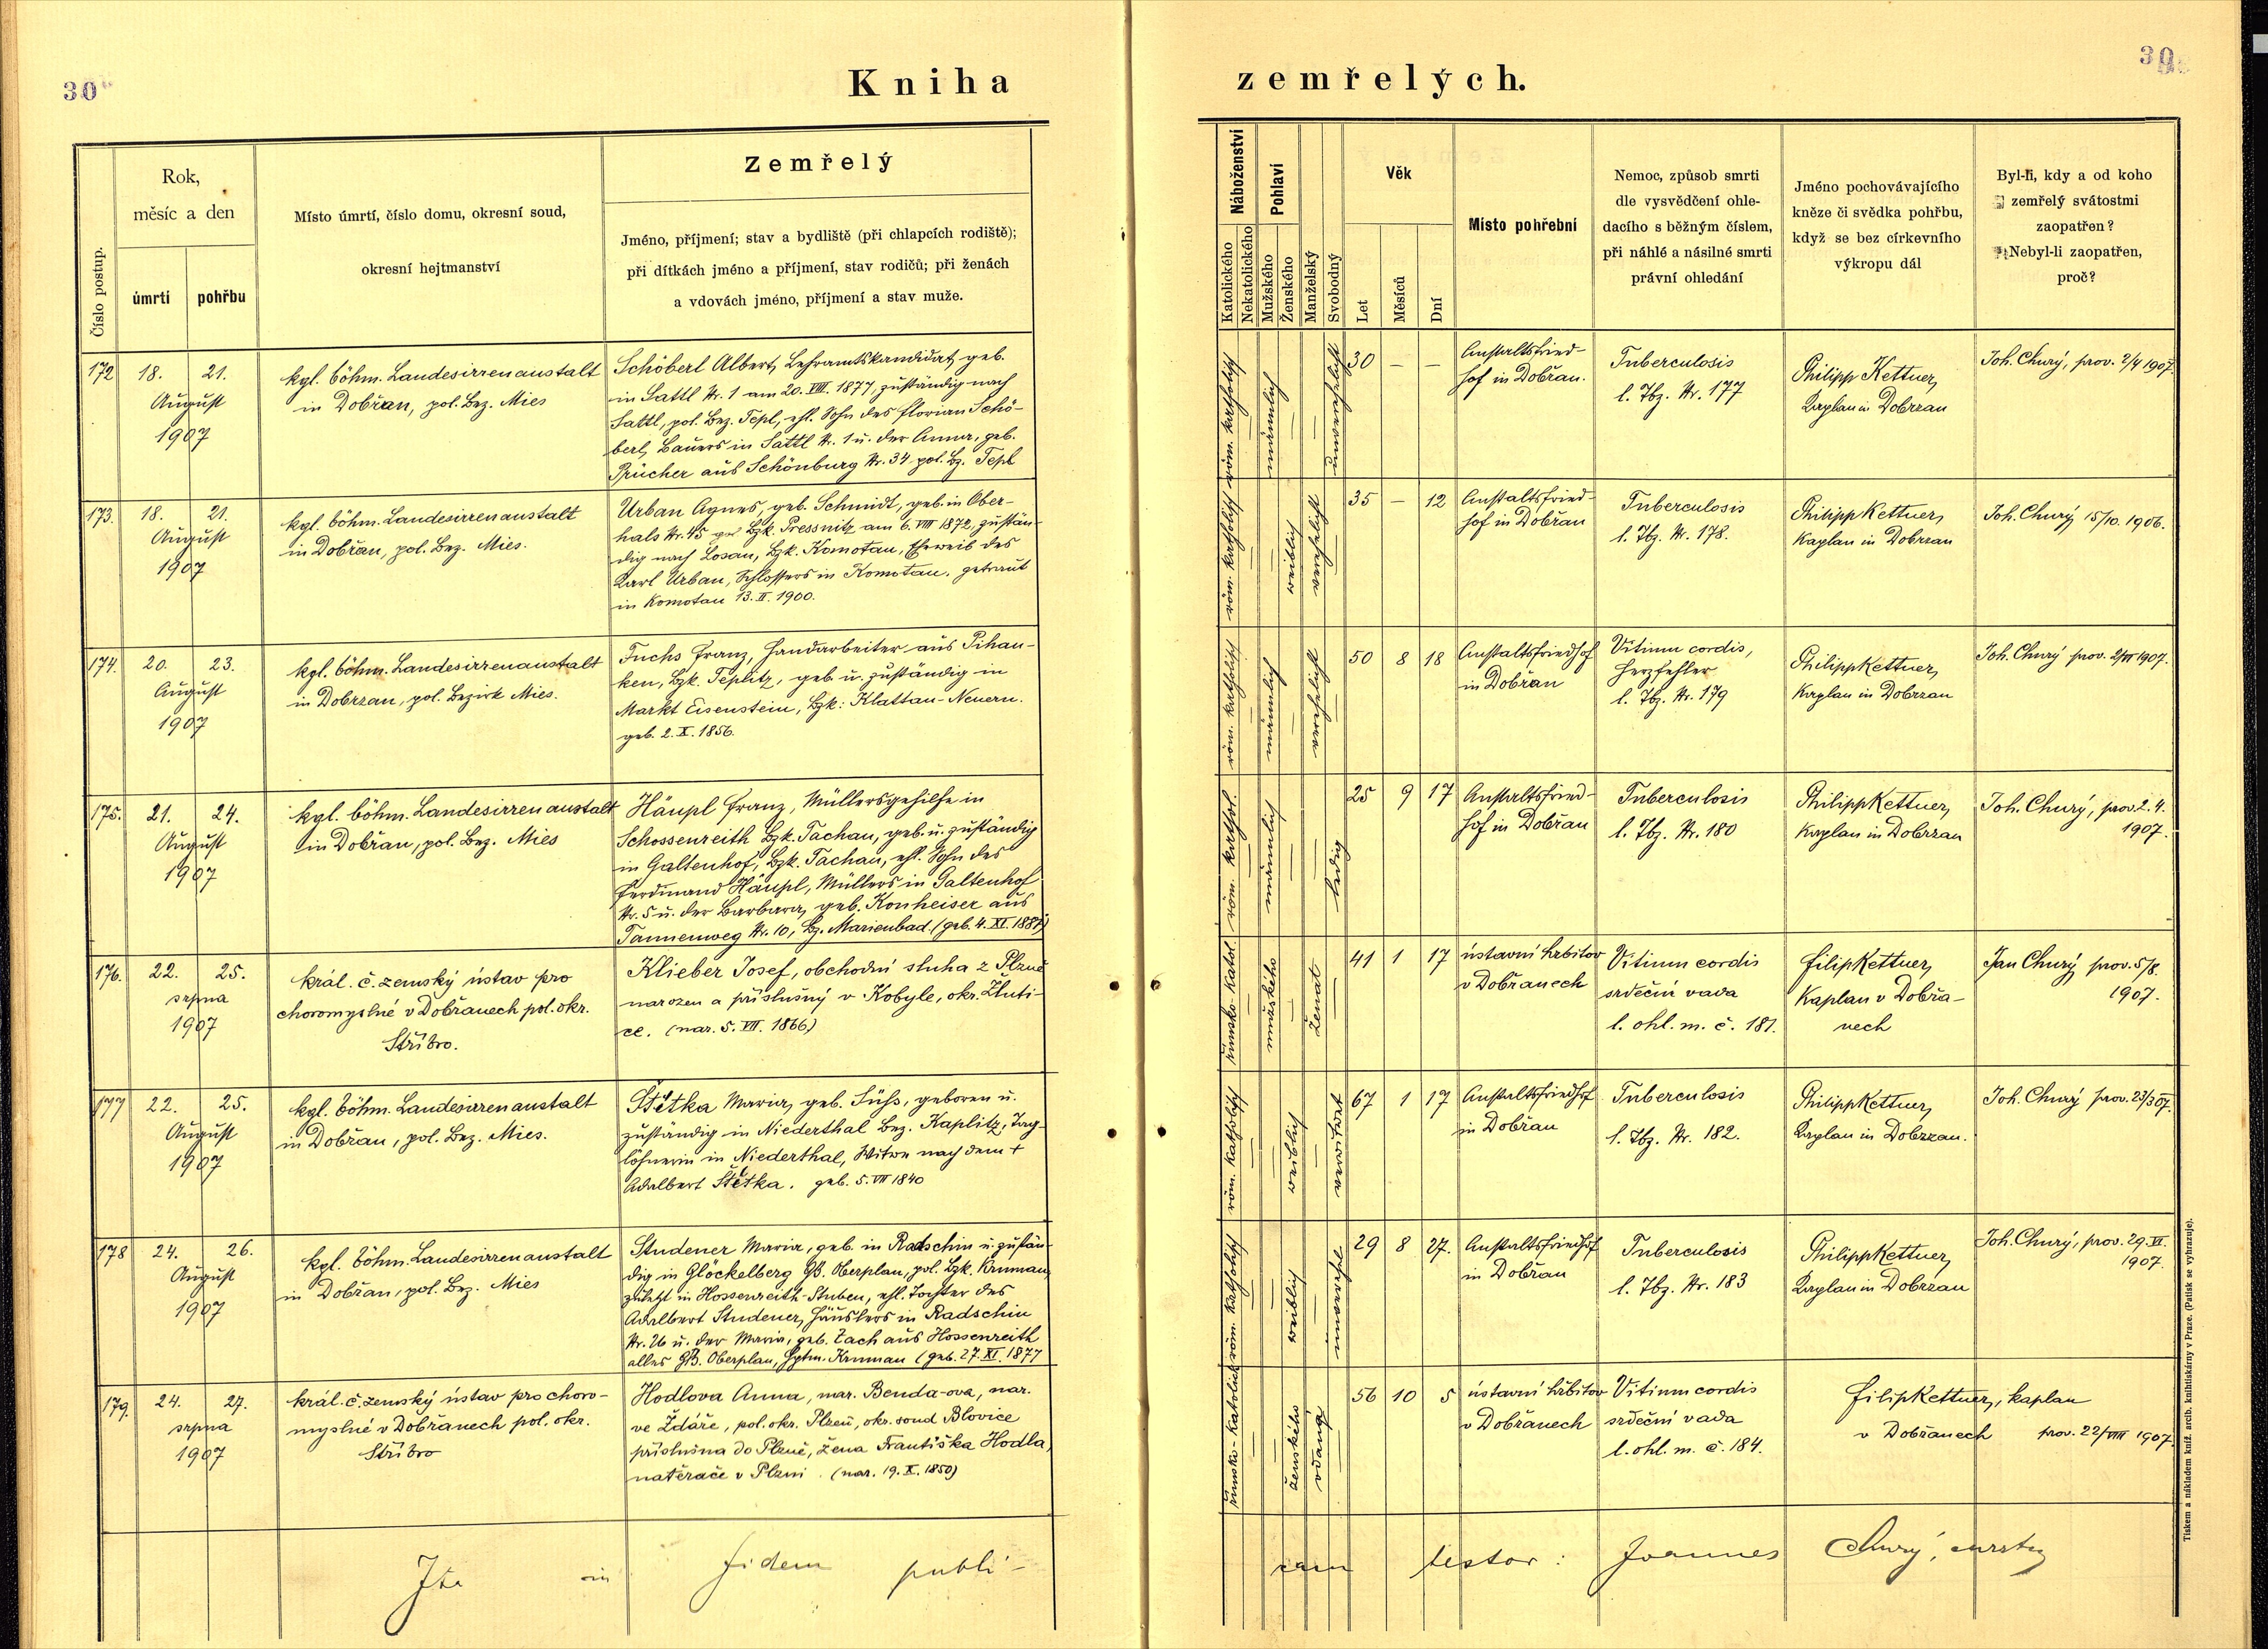 30
Kniha
zemřelých.
30
Číslo postup.
Rok,
měsíc a den
úmrtí
pohřbu
Místo úmrtí, číslo domu, okresní soud,
okresní hejtmanství
Zemřelý
Jméno, příjmení; stav a bydliště (při chlapcích rodiště);
při dítkách jméno a příjmení, stav rodičů; při ženách
a vdovách jméno, příjmení a stav muže.
Náboženství
Katolického
Nekatolického
Pohlaví
Mužského
Ženského
Manželský
Svobodný
Věk
Let
Měsíců
Dní
Místo pohřební
Nemoc, způsob smrti
dle vysvědčení ohle-
dacího s běžným číslem,
při náhlé a násilné smrti
právní ohledání
Jméno pochovávajícího
kněze či svědka pohřbu,
když se bez církevního
výkropu dál
Byl-li, kdy a od koho
zemřelý svátostmi
zaopatřen?
Nebyl-li zaopatřen,
proč?
172
18. 21.
August
1907
kgl. böhm. Landesirrenanstalt
in Dobřan, pol. Bez. Mies
Schöberl Albert, Lehramtskandidat, geb.
in Sattl Nr. 1 am 20. VIII. 1877, zuständig nach
Sattl, pol. Bez. Tepl, ehl. Sohn des Florian Schö-
berl, Bauers in Sattl Nr. 1 u. der Anna, geb.
Prücher aus Schönburg Nr. 34 pol. Bz. Tepl
röm. katholisch
männlich
unverehelicht
30 — —
Anstaltsfried-
hof in Dobřan.
Tuberculosis
l. Tbz. Nr. 177
Philipp Kettner,
Kaplan in Dobrzan
Joh. Churý, prov. 2/4 1907.
173.
18. 21.
August
1907
kgl. böhm. Landesirrenanstalt
in Dobřan, pol. Bez. Mies.
Urban Agnes, geb. Schmidt, geb. in Ober-
hals Nr. 45 Bzk. Pressnitz am 6. VIII 1872, zustän-
dig nach Losan, Bzk. Komotau, Eheweib des
Karl Urban, Schlossers in Komotau, getraut
in Komotau 13. II. 1900.
röm. katholisch
weiblich
verehelicht
35 — 12
Anstaltsfried-
hof in Dobřan
Tuberculosis
l. Tbz. Nr. 178.
Philipp Kettner,
Kaplan in Dobrzan
Joh. Churý, 15/10. 1906.
174.
20. 23.
August
1907
kgl. böhm. Landesirrenanstalt
in Dobrzan, pol. Bezirk Mies.
Fuchs Franz, Handarbeiter aus Pihan-
ken, Bzk. Teplitz, geb. u. zuständig in
Markt Eisenstein, Bzk: Klattau-Neuern.
geb. 2. X. 1856.
röm. katholisch
männlich
verehelicht
50 8 18
Anstaltsfriedhof
in Dobřan
Vitium cordis,
Herzfehler
l. Tbz. Nr. 179
Philipp Kettner,
Kaplan in Dobrzan
Joh. Churý prov. 2/VI 1907.
175.
21. 24.
August
1907
kgl. böhm. Landesirrenanstalt
in Dobřan, pol. Bez. Mies
Häupl Franz, Müllersgehilfe in
Schossenreith Bzk. Tachau, geb. u. zuständig
in Galtenhof, Bzk. Tachau, ehl. Sohn des
Ferdinand Häupl, Müllers in Galtenhof
Nr. 5 u. der Barbara, geb. Konheiser aus
Tannenweg Nr. 10, Bz. Marienbad. (geb. 4. XI. 1881)
röm. kathol.
männlich
ledig
25 9 17
Anstaltsfried-
hof in Dobřan
Tuberculosis
l. Tbz. Nr. 180
Philipp Kettner,
Kaplan in Dobrzan
Joh. Churý, prov. 2. 4.
1907.
176.
22. 25.
srpna
1907
král. č. zemský ústav pro
choromyslné v Dobřanech pol. okr.
Stříbro.
Klieber Josef, obchodní sluha z Plzně
narozen a příslušný v Kobyle, okr. Žluti-
ce. (nar. 5. VII. 1866)
římsko-katol.
mužského
ženat
41 1 17
ústavní hřbitov
v Dobřanech
Vitium cordis
srdeční vada
l. ohl. m. č. 181.
Filip Kettner,
Kaplan v Dobřa-
nech
Jan Churý prov. 5/8.
1907.
177
22. 25.
August
1907
kgl. böhm. Landesirrenanstalt
in Dobřan, pol. Bez. Mies.
Štětka Maria, geb. Sühs, geboren u.
zuständig in Niederthal Bez. Kaplitz, Tag-
löhnerin in Niederthal, Witwe nach dem †
Adalbert Štětka. geb. 5. VII 1840
röm. katholisch
weiblich
verwitwet
67 1 17
Anstaltsfriedhof
in Dobřan
Tuberculosis
l. Tbz. Nr. 182.
Philipp Kettner,
Kaplan in Dobrzan.
Joh. Churý prov. 23/3 07.
178
24. 26.
August
1907
kgl. böhm. Landesirrenanstalt
in Dobřan, pol. Bez. Mies
Studener Maria, geb. in Radschin u. zustän-
dig in Glöckelberg GB. Oberplan, pol. Bzk. Krumau,
zuletzt in Hossenreith-Stuben, ehl. Tochter des
Adalbert Studener, Häuslers in Radschin
Nr. 26 u. der Maria, geb. Zach aus Hossenreith
alles GB. Oberplan, Hptm. Krumau (geb. 27. XI. 1877
röm. katholisch
weiblich
unverehel.
29 8 27.
Anstaltsfriedhof
in Dobřan
Tuberculosis
l. Tbz. Nr. 183
Philipp Kettner,
Kaplan in Dobrzan
Joh. Churý, prov. 29. VI.
1907.
179.
24. 27.
srpna
1907
král. č. zemský ústav pro choro-
myslné v Dobřanech pol. okr.
Stříbro
Hodlova Anna, nar. Benda-ova, nar.
ve Ždáře, pol. okr. Plzeň, okr. soud Blovice
příslušna do Plzně, žena Františka Hodla,
natěrače v Plzni. (nar. 19. X. 1850)
římsko-katolick.
ženského
vdaná
56 10 5
ústavní hřbitov
v Dobřanech
Vitium cordis
srdeční vada
l. ohl. m. č. 184.
Filip Kettner, kaplan
v Dobřanech prov. 22/VIII 1907
Ita in fidem publi-
cam testor: Joannes Churý,
Tiskem a nákladem kníž. arcib. knihtiskárny v Praze. (Patisk se vyhrazuje).